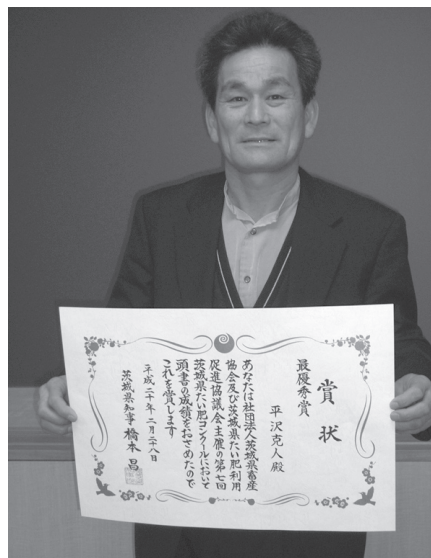 賞状
最優秀賞
平沢克人殿
あなたは社団法人茨城県畜産
協会及び茨城県たい肥利用
促進協議会主催の第七回
茨城県たい肥コンクールにおいて
頭書の成績をおさめたので
これを賞します
平成二十年二月二十八日
茨城県知事 橋本昌